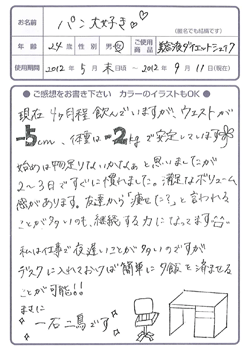 お名前 パン大好き♡
(匿名でも結構です)
年齢 24歳 男・女 ご使用商品 美ダイエットシェイク
使用期間 2012年5月末日頃 ~ 2012年9月11日(現在)
●ご感想をお書き下さい カラーのイラストもOK●
現在 4ヶ月程 飲んでいますが、ウエストが
-5cm、体重は-2kgで安定しています
始めは物足りないかなぁと思いましたが
2~3日ですぐに慣れました。満足なボリューム
感があります。友達から「痩せた?」と言われる
ことが多いのも、継続する力になってます
私は仕事で夜遅いことが多いのですが
デスクに入れておけば簡単に夕飯を済ませる
ことが可能!!
まさに
一石二鳥です